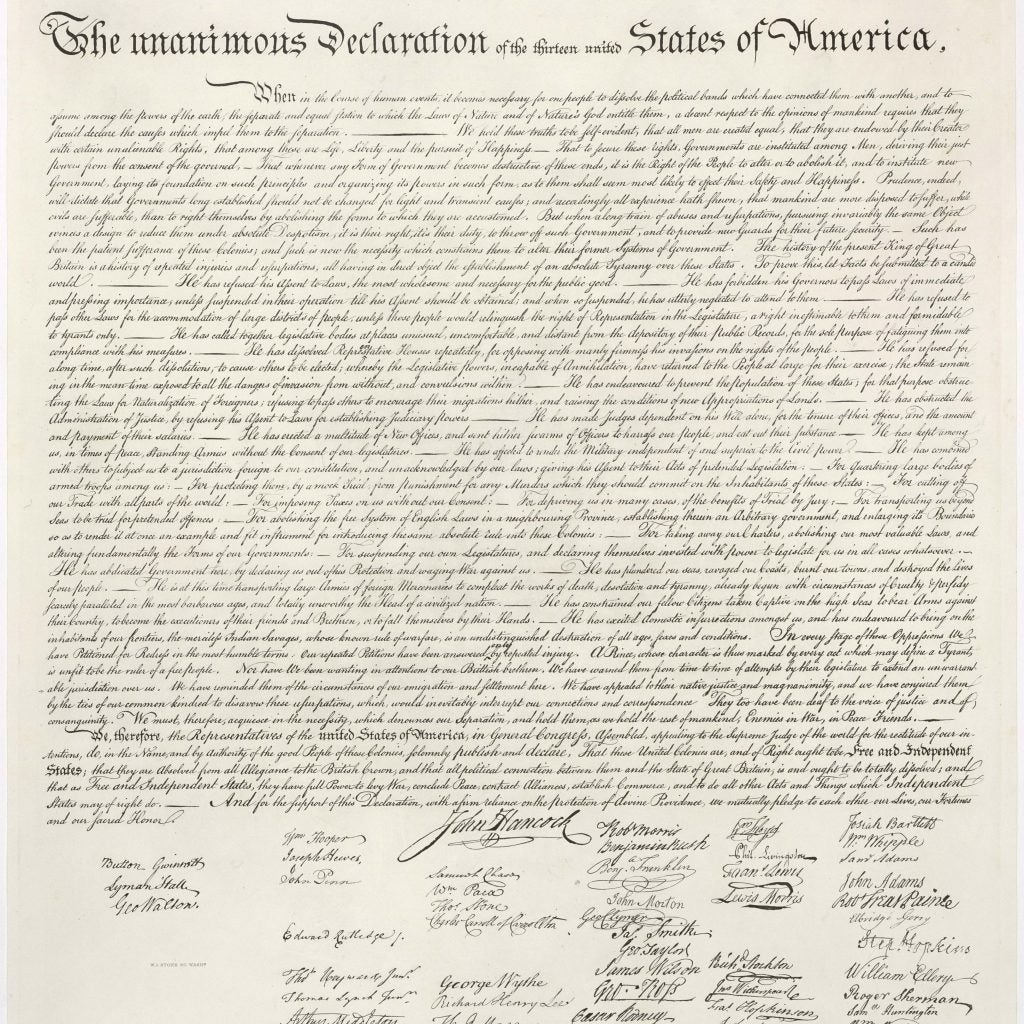 The unanimous Declaration of the thirteen united States of America.
When in the Course of human events, it becomes necessary for one people to dissolve the political bands which have connected them with another, and to
assume among the powers of the earth, the separate and equal station to which the Laws of Nature and of Nature's God entitle them, a decent respect to the opinions of mankind requires that they
should declare the causes which impel them to the separation. — We hold these truths to be self-evident, that all men are created equal, that they are endowed by their Creator
with certain unalienable Rights, that among these are Life, Liberty and the pursuit of Happiness — That to secure these rights, Governments are instituted among Men, deriving their just
powers from the consent of the governed, — That whenever any Form of Government becomes destructive of these ends, it is the Right of the People to alter or to abolish it, and to institute new
Government, laying its foundation on such principles and organizing its powers in such form, as to them shall seem most likely to effect their Safety and Happiness. Prudence, indeed,
will dictate that Governments long established should not be changed for light and transient causes; and accordingly all experience hath shewn, that mankind are more disposed to suffer, while
evils are sufferable, than to right themselves by abolishing the forms to which they are accustomed. But when a long train of abuses and usurpations, pursuing invariably the same Object
evinces a design to reduce them under absolute Despotism, it is their right, it is their duty, to throw off such Government, and to provide new Guards for their future security. — Such has
been the patient sufferance of these Colonies; and such is now the necessity which constrains them to alter their former Systems of Government. The history of the present King of Great
Britain is a history of repeated injuries and usurpations, all having in direct object the establishment of an absolute Tyranny over these States. To prove this, let Facts be submitted to a candid
world. — He has refused his Assent to Laws, the most wholesome and necessary for the public good. — He has forbidden his Governors to pass Laws of immediate
and pressing importance, unless suspended in their operation till his Assent should be obtained; and when so suspended, he has utterly neglected to attend to them. — He has refused to
pass other Laws for the accommodation of large districts of people, unless those people would relinquish the right of Representation in the Legislature, a right inestimable to them and formidable
to tyrants only. — He has called together legislative bodies at places unusual, uncomfortable, and distant from the depository of their Public Records, for the sole purpose of fatiguing them into
compliance with his measures. — He has dissolved Representative Houses repeatedly, for opposing with manly firmness his invasions on the rights of the people. — He has refused for
a long time, after such dissolutions, to cause others to be elected; whereby the Legislative powers, incapable of Annihilation, have returned to the People at large for their exercise; the State remain
ing in the mean time exposed to all the dangers of invasion from without, and convulsions within. — He has endeavoured to prevent the population of these States; for that purpose obstruc-
ting the Laws for Naturalization of Foreigners; refusing to pass others to encourage their migrations hither, and raising the conditions of new Appropriations of Lands. — He has obstructed the
Administration of Justice, by refusing his Assent to Laws for establishing Judiciary powers. — He has made Judges dependent on his Will alone, for the tenure of their offices, and the amount
and payment of their salaries. — He has erected a multitude of New Offices, and sent hither swarms of Officers to harrass our people, and eat out their substance. — He has kept among
us, in times of peace, Standing Armies without the Consent of our legislatures. — He has affected to render the Military independent of and superior to the Civil power. — He has combined
with others to subject us to a jurisdiction foreign to our constitution, and unacknowledged by our laws; giving his Assent to their Acts of pretended Legislation: — For Quartering large bodies of
armed troops among us: — For protecting them, by a mock Trial, from punishment for any Murders which they should commit on the Inhabitants of these States: — For cutting off
our Trade with all parts of the world: — For imposing Taxes on us without our Consent: — For depriving us in many cases, of the benefits of Trial by jury: — For transporting us beyond
Seas to be tried for pretended offences: — For abolishing the free System of English Laws in a neighbouring Province, establishing therein an Arbitrary government, and enlarging its Boundaries
so as to render it at once an example and fit instrument for introducing the same absolute rule into these Colonies: — For taking away our Charters, abolishing our most valuable Laws, and
altering fundamentally the Forms of our Governments: — For suspending our own Legislatures, and declaring themselves invested with power to legislate for us in all cases whatsoever. —
He has abdicated Government here, by declaring us out of his Protection and waging War against us. — He has plundered our seas, ravaged our Coasts, burnt our towns, and destroyed the lives
of our people. — He is at this time transporting large Armies of foreign Mercenaries to compleat the works of death, desolation and tyranny, already begun with circumstances of Cruelty & perfidy
scarcely paralleled in the most barbarous ages, and totally unworthy the Head of a civilized nation. — He has constrained our fellow Citizens taken Captive on the high Seas to bear Arms against
their Country, to become the executioners of their friends and Brethren, or to fall themselves by their Hands. — He has excited domestic insurrections amongst us, and has endeavoured to bring on the
inhabitants of our frontiers, the merciless Indian Savages, whose known rule of warfare, is an undistinguished destruction of all ages, sexes and conditions. In every stage of these Oppressions We
have Petitioned for Redress in the most humble terms: Our repeated Petitions have been answered only by repeated injury. A Prince, whose character is thus marked by every act which may define a Tyrant,
is unfit to be the ruler of a free people. Nor have We been wanting in attentions to our Brittish brethren. We have warned them from time to time of attempts by their legislature to extend an unwarrant-
able jurisdiction over us. We have reminded them of the circumstances of our emigration and settlement here. We have appealed to their native justice and magnanimity, and we have conjured them
by the ties of our common kindred to disavow these usurpations, which, would inevitably interrupt our connections and correspondence. They too have been deaf to the voice of justice and of
consanguinity. We must, therefore, acquiesce in the necessity, which denounces our Separation, and hold them, as we hold the rest of mankind, Enemies in War, in Peace Friends. —
We, therefore, the Representatives of the united States of America, in General Congress, Assembled, appealing to the Supreme Judge of the world for the rectitude of our in-
tentions, do, in the Name, and by Authority of the good People of these Colonies, solemnly publish and declare, That these United Colonies are, and of Right ought to be Free and Independent
States; that they are Absolved from all Allegiance to the British Crown, and that all political connection between them and the State of Great Britain, is and ought to be totally dissolved; and
that as Free and Independent States, they have full Power to levy War, conclude Peace, contract Alliances, establish Commerce, and to do all other Acts and Things which Independent
States may of right do. — And for the support of this Declaration, with a firm reliance on the protection of divine Providence, we mutually pledge to each other our Lives, our Fortunes
and our sacred Honor.
Button Gwinnett
Lyman Hall
Geo Walton.
W.J. STONE SC. WASHN
Wm Hooper
Joseph Hewes,
John Penn
Edward Rutledge /.
Thos Heyward Junr.
Thomas Lynch Junr.
Arthur Middleton
John Hancock
Samuel Chase
Wm Paca
Thos Stone
Charles Carroll of Carrollton
George Wythe
Richard Henry Lee
Robt Morris
Benjamin Rush
Benj. Franklin
John Morton
Geo Clymer
Jas. Smith
Geo. Taylor
James Wilson
Geo. Ross
Caesar Rodney
Wm Floyd
Phil. Livingston
Frans. Lewis
Lewis Morris
Richd. Stockton
Jno Witherspoon
Fras. Hopkinson
Josiah Bartlett
Wm Whipple
Saml Adams
John Adams
Robt Treat Paine
Elbridge Gerry
Step. Hopkins
William Ellery
Roger Sherman
Saml Huntington